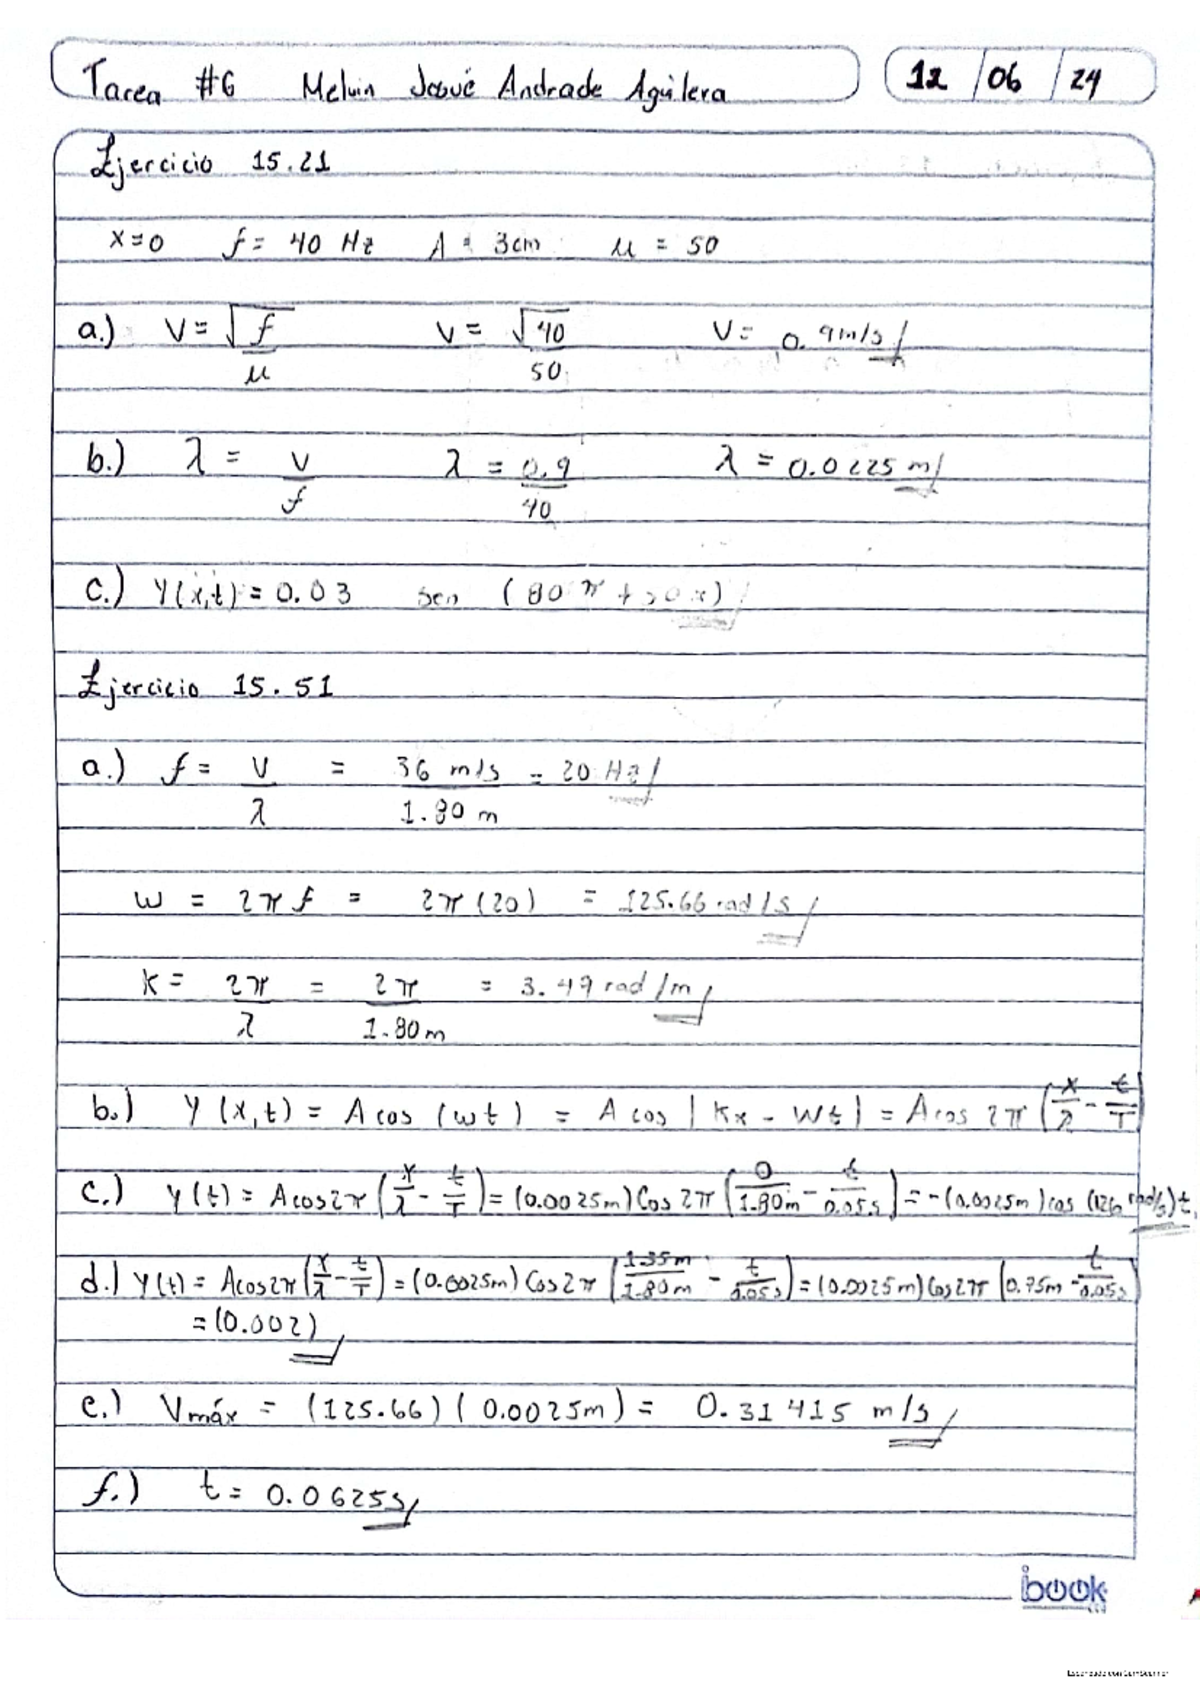 Tarea #6 Melvin Josué Andrade Aguilera 12 / 06 / 24
Ejercicio 15.21
x=0 f= 40 Hz A = 3cm μ = 50
a.) V= √f / μ V= √40 / 50 V= 0.9m/s
b.) λ = V / f λ = 0.9 / 40 λ = 0.0225 m
c.) Y(x,t) = 0.03 sen (80 π +
Ejercicio 15.51
a.) f= V / λ = 36 m/s / 1.80 m = 20 Hz
w = 2π f = 2π (20) = 125.66 rad/s
K = 2π / λ = 2π / 1.80m = 3.49 rad/m
b.) Y (x,t) = A cos (wt) = A cos | Kx - Wt | = A cos 2π (x/λ - t/T)
c.) Y(t) = A cos2π (x/λ - t/T) = (0.0025m) Cos 2π (0/1.80m - t/0.05s) = -(0.0025m) cos (126 rad/s)t,
d.) Y(t) = A cos2π (x/λ - t/T) = (0.0025m) Cos2π (1.35m/1.80m - t/0.05s) = (0.0025m) Cos2π (0.75m - t/0.05s)
= (0.002)
e.) Vmáx = (125.66) ( 0.0025m) = 0.31415 m/s
f.) t = 0.0625s
ibook
Escaneado con CamScanner